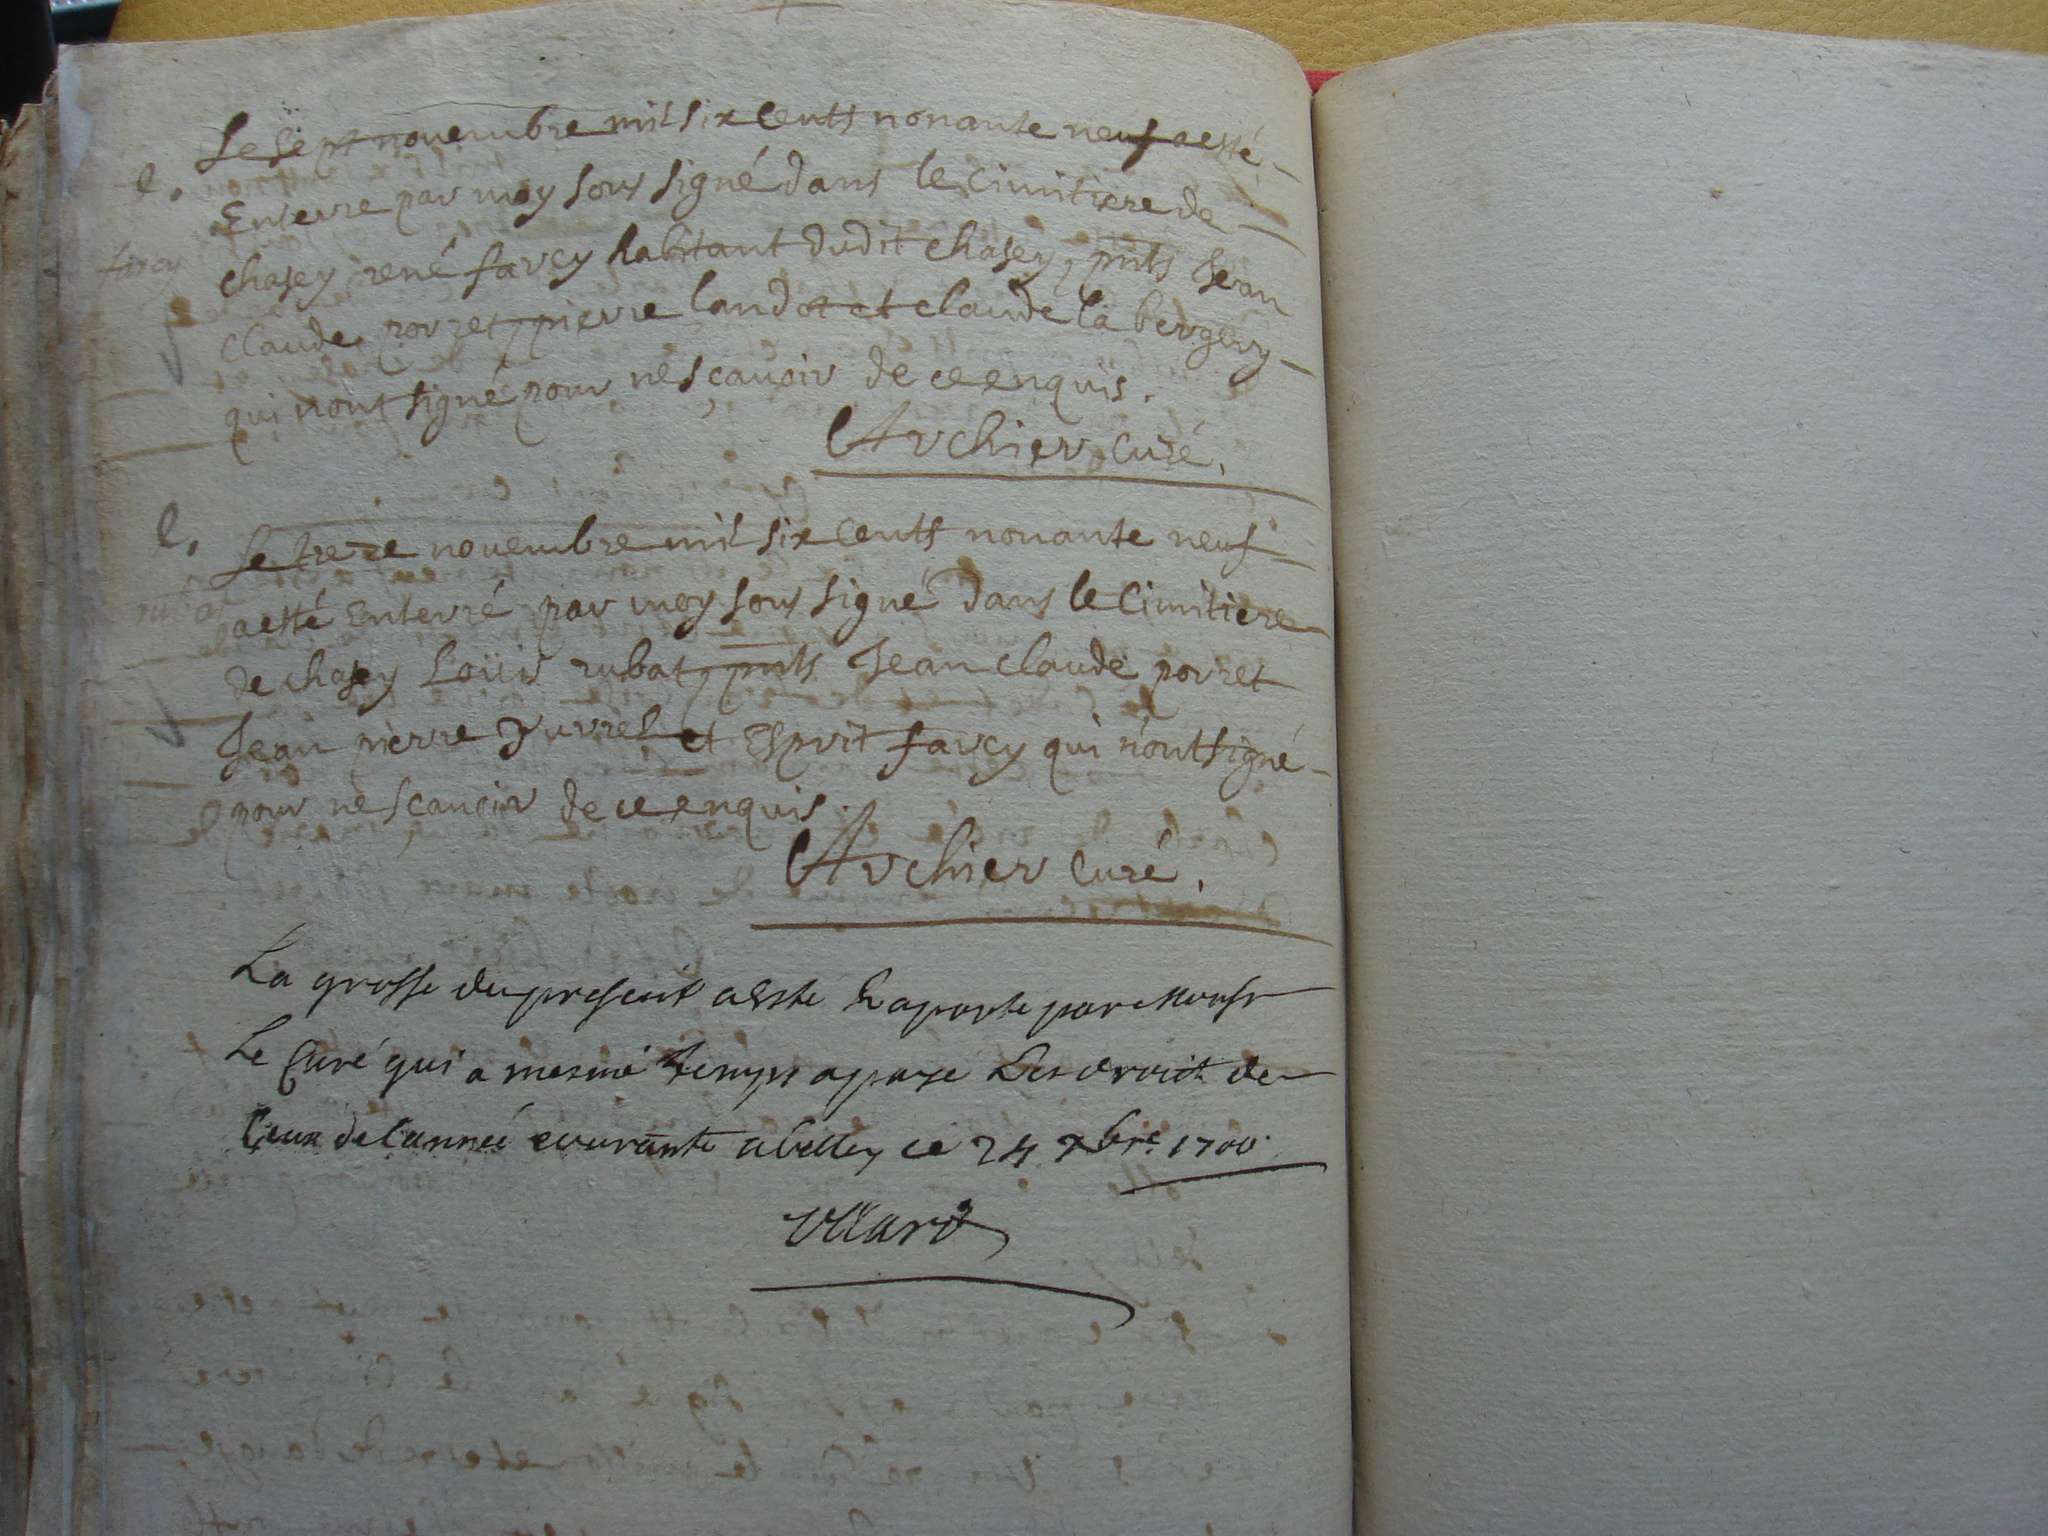 Le sept novembre mil six cents nonante neuf a esté
e.
Enterre par moy sous signé dans le cimitiere de
farcy
chasey rené farcy habitant dudit chasey, pnts Jean
claude porret, pierre landot et claude la bergery
qui n'ont signé pour ne sçavoir de ce enquis.
Archier curé.
e.
Le treze novembre mil six cents nonante neuf
rubat
a esté Enterré par moy sous signé dans le cimitiere
de chasey Loüis rubat, pnts Jean claude porret
Jean pierre et Esprit farcy qui n'ont signé
pour ne scavoir de ce enquis.
Archier curé.
La grosse du present a este Raporte par Monsr
Le Curé qui a mesme temps a paye Les droit de
Ceux de l'anneé courante a belley ce 24 xbre. 1700.